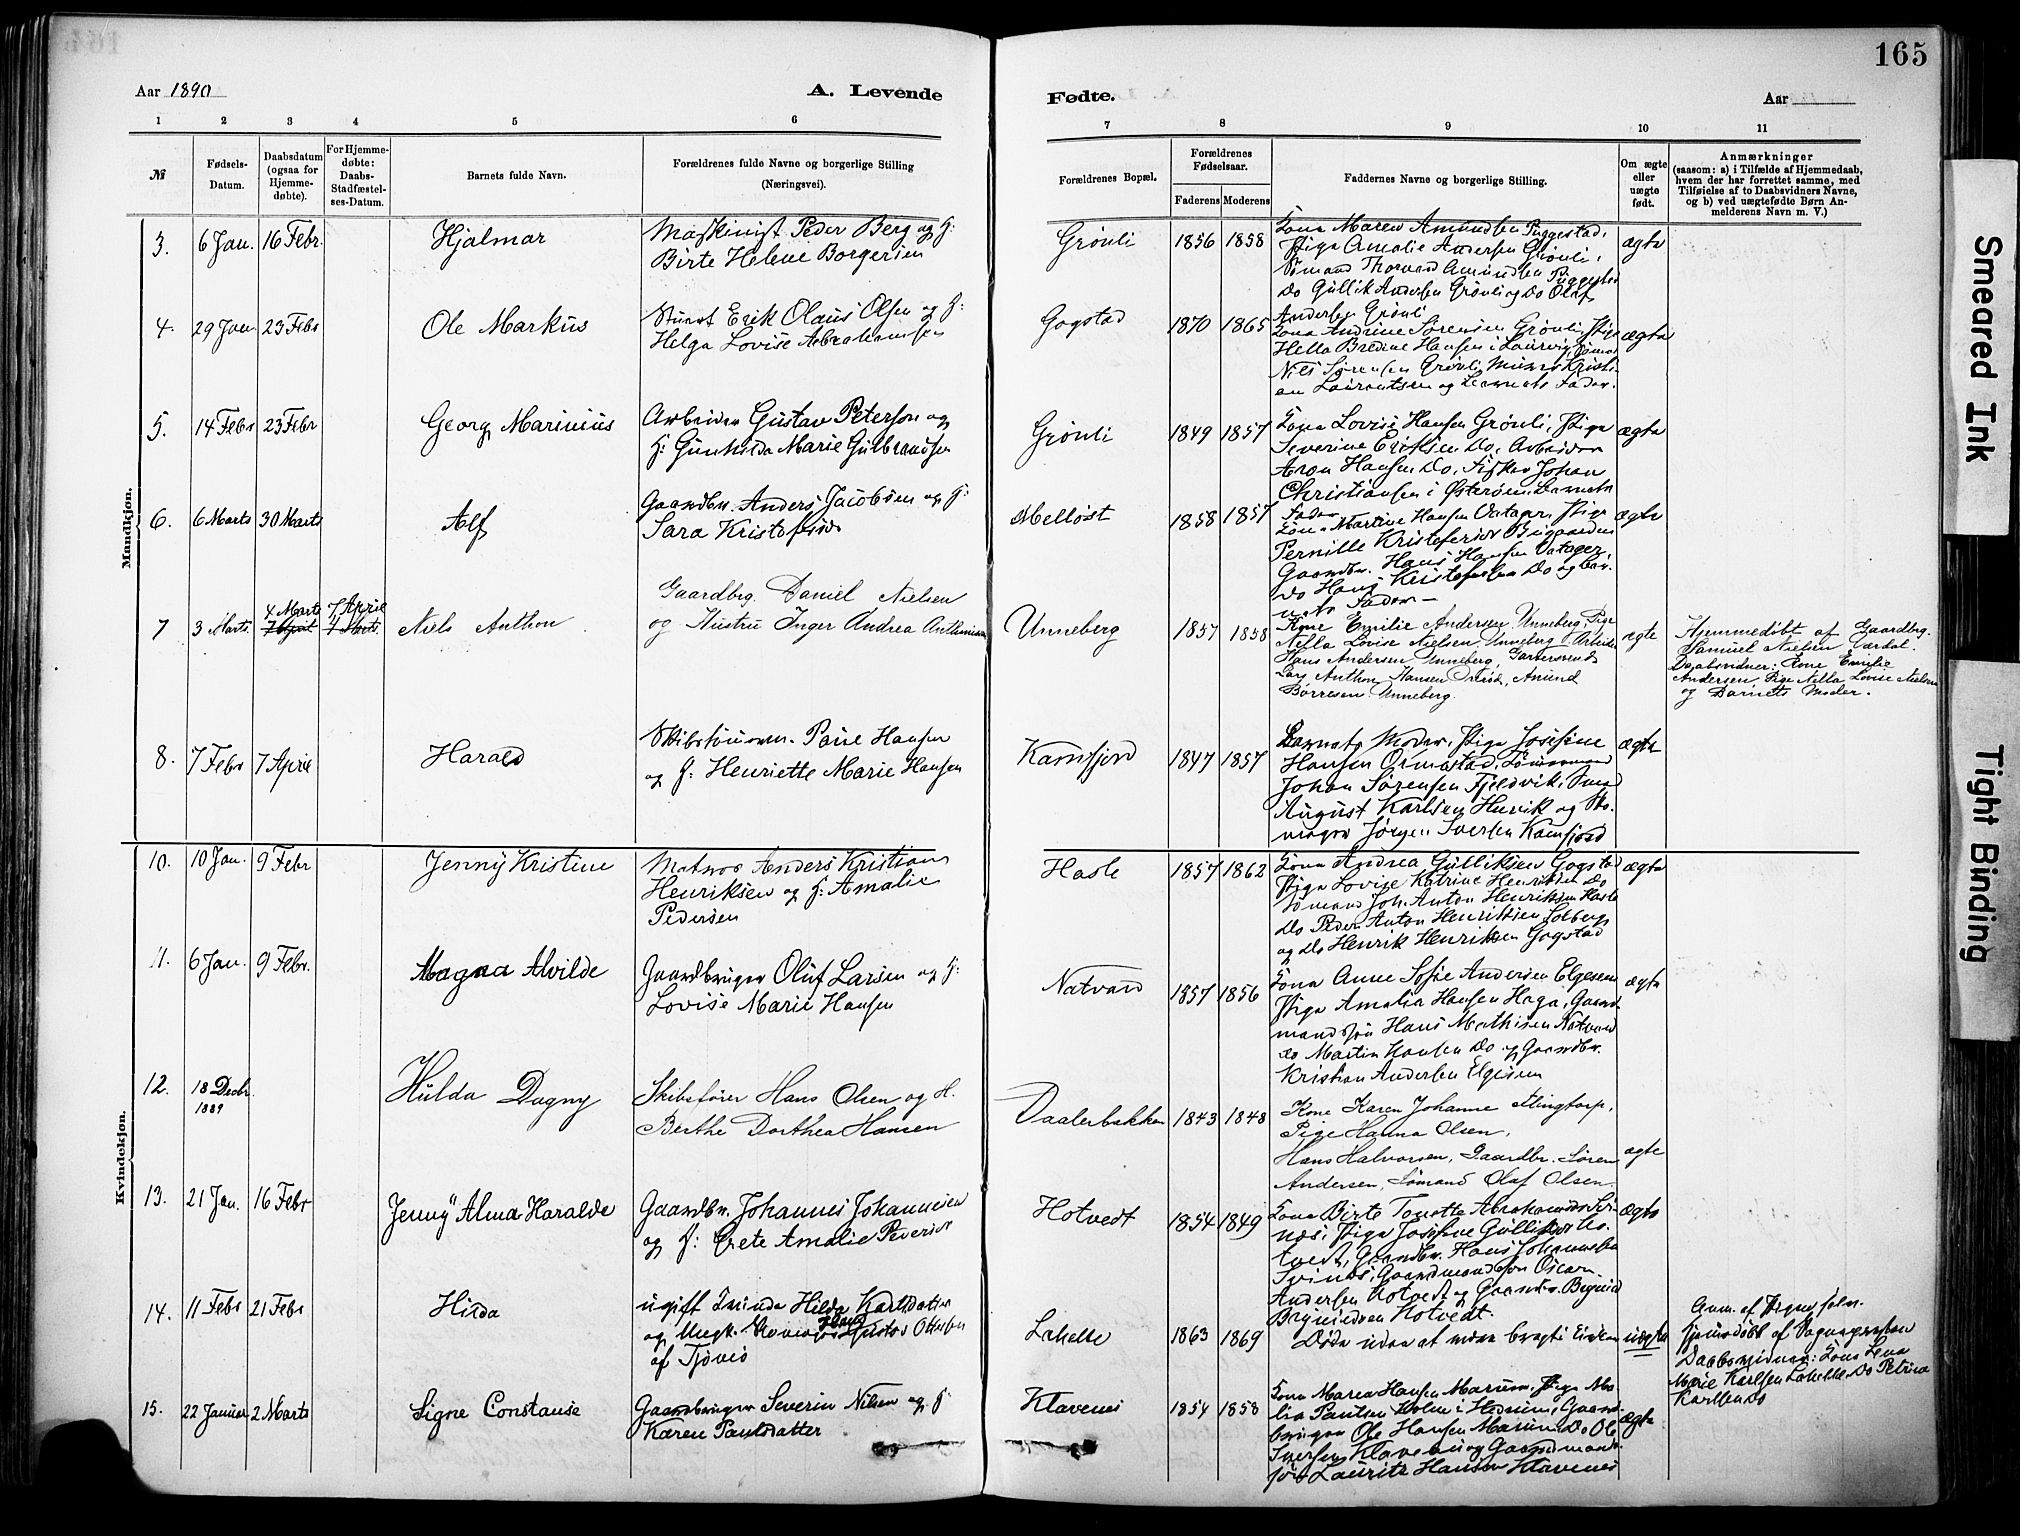 165
Aar 1890
A. Levende
Fødte.
Aar
1 2 3 4 5 6 7 8 9 10 11
№
Fødsels-
Datum.
Daabsdatum
(ogsaa for
Hjemme-
døbte).
For Hjemme-
døbte:
Daabs-
Stadfæstel-
ses-Datum.
Barnets fulde Navn.
Forældrenes fulde Navne og borgerlige Stilling
(Næringsvei).
Forældrenes Bopæl.
Forældrenes
Fødselsaar.
Faderens Moderens
Faddernes Navne og borgerlige Stilling.
Om ægte
eller
uægte
født.
Anmærkninger
(saasom: a) i Tilfælde af Hjemmedaab,
hvem der har forrettet samme, med
Tilføielse af to Daabsvidners Navne,
og b) ved uægtefødte Børn An-
melderens Navn m. V.)
Mandkjøn.
3. 6 Jan. 16 Febr. Hjalmar
Maskinist Peder Berg og H:
Birte Helene Borgersen
Grönli 1856 1858
Kone Maren Amundsen
Pige Amalie Andersen Grönli,
Sømand Thorvard Amundsen
Do Gullik Andersen Grönli og Do Olaf
Andersen Grönli
ægte
4. 29 Jan. 23 Febr Ole Markus
Erik Olaus Olsen og H:
Helga Lovise Abrahamsen
Gogstad 1870 1865
Kone Andrine Sørensen Grönli, Pige
Hella Bredine Hansen i Laurvig,
Nils Sørensen Grönli,
Laurentsen og Barnets Fader.
ægte
5. 14 Febr 23 Febr Georg Marinius
Arbeider Gustav Peterson og
H: Gunhilda Marie Gulbrandsen
Grönli 1849 1857
Kone Lovise Hansen Grönli, Pige
Severine Eriksen Do, Arbeider
Aron Hansen Do, Fisker Johan
Christiansen i Østerøen, Barnets
Fader
ægte
6. 6 Marts 30 Marts Alf
Gaardbr. Anders Jacobsen og H:
Sara Kristofersd
Melløst 1858 1857
Martine Hansen Pige
Pernille
Gaardbr. Hans Hansen
Do Hans Kristofersen Do og Bar-
nets Fader
ægte
7 3 Marts. 4 Marts 7 April 7 April 4 Marts. Niels Anthon
Gaardbrg. Daniel Nielsen
og Hustru Inger Andrea Anthonisen
Unneberg 1857 1858
Kone Emilie Andersen, Unneberg, Pige
Nella Lovise Nielsen, Unneberg Arbeider
Hans Andersen Unneberg,
Lars Anthon Hansen Amund
Børresen Unneberg.
ægte
Hjemmedøbt af Gaardbrg.
Samuel Nielsen Værdal.
Daabsvidner: Kone Emilie
Andersen, Pige Nella Lovise Nielsen
og Barnets Moder.
8. 7 Febr 7 April Harald
Paul Hansen
og H: Henriette Marie Hansen
Kamfjord 1847 1857
Barnets Moder, Pige Josefine
Hansen Ormestad,
Johan Sørensen Fjeldvik,
August Karlsen Hunvik og
Jørgen Iversen Kamfjord
ægte
Kvindekjøn.
10. 10 Jan. 9 Febr Jenny Kristine
Matros Anders Kristian
Henriksen og H: Amalie
Pedersen
Hasle 1857 1862
Kone Andrea Gulliksen Gogstad
Pige Lovise Katrine Henriksen Do
Sømand Joh. Anton Henriksen Hasle
Do Peder Anton Henriksen Solberg
og Do Henrik Henriksen Gogstad
ægte
11. 6 Jan. 9 Febr. Magna Alvilde
Gaardbruger Oluf Larsen og H:
Lovise Marie Hansen
Natvard 1857 1856
Kone Anne Sofie Andersen Elgesem
Pige Amalia Hansen Haga, Gaard-
mandssøn Hans Mathisen Natvard
Do Martin Hansen Do og Gaardbr.
Kristian Andersen Elgesem
ægte
12. 18 Decbr.
1889 Hulda Dagny
Skibsfører Hans Olsen og H.
Berthe Dorthea Hansen
Daalerbakken 1843 1848
Kone Karen Johanne Flingtorp,
Pige Hanna Olsen,
Hans Halvorsen, Gaardbr. Søren
Andersen, Sømand Olaf Olsen.
ægte
13. 21 Jan. 16 Febr Jenny Alma Haralde
Gaardbr. Johannes Johannesen
og H: Grete Amalie Pedersd
Hotvedt 1854 1849
Kone Birte Tonette Abrahamsd
Pige Josefine Gulliksen Ho-
tvedt, Gaardbr. Hans Johannesen
Gaardmandssøn Oscar
Andersen Hotvedt og Gaardbr. Brynild
Brynildsen Hotvedt.
ægte
14. 11 Febr 21 Febr Hilda
ugift Kvinde Hilda Karlsdatter
og Ungk. Hans Gustav Ottersen
af Tjømø
Lahelle 1863 1869
Døde uden at være bragt i Kirken
uægte
Anm. af Pigen selv.
Hjemdøbt af Sognepresten
Daabsvidner: Kone Lena
Marie Karlsen Lahelle Do Petrine
Karlsen Do
15. 22 Januar 2 Marts Signe Constanse
Gaardbruger Severin Nilsen og H
Karen Paulsdatter
Klavenes 1854 1858
Kone Maren Hansen Marum, Pige
Paulsen Holm i Hedrum, Gaard-
bruger Ole Hansen Marum Do Ole
Iversen Klavenes og Gaardmands-
søn Lauritz Hansen Klavenes
ægte
Smeared Ink
Tight Binding